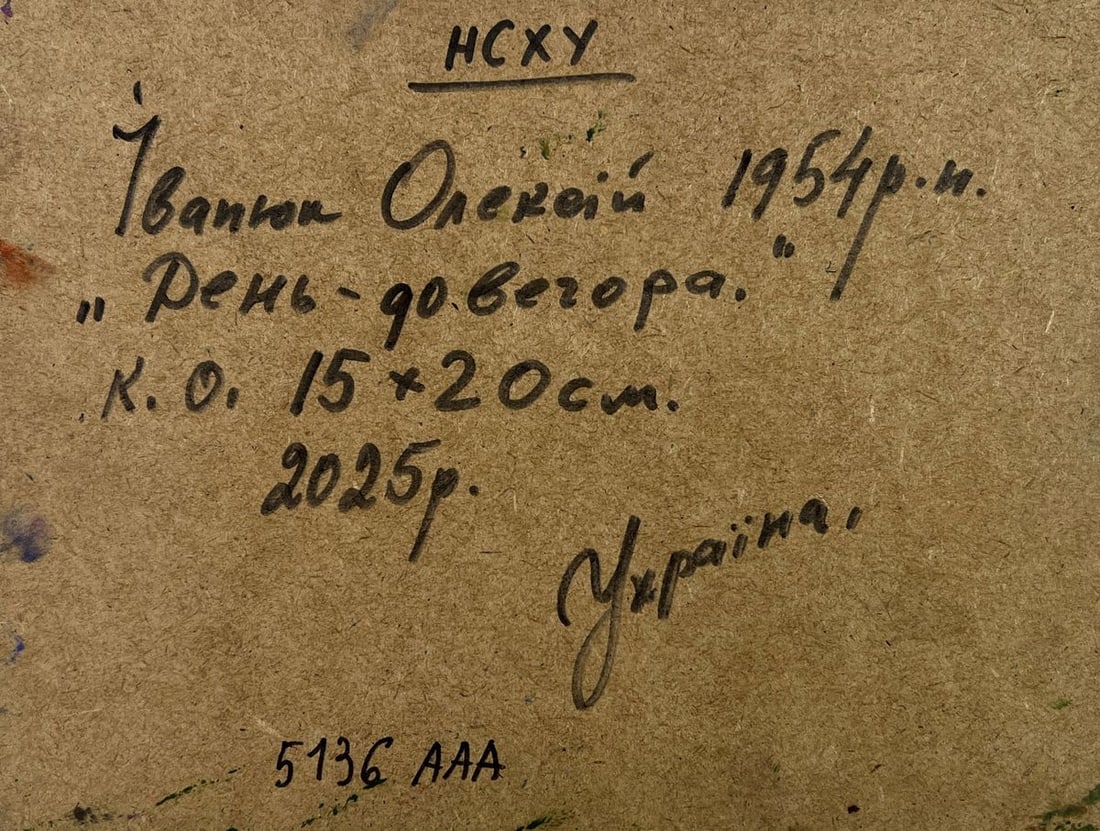 НСХУ
Іванюк Олексій 1954р.н.
„День-до вечора."
к.о. 15×20см.
2025р.
Україна.
5136 AAA